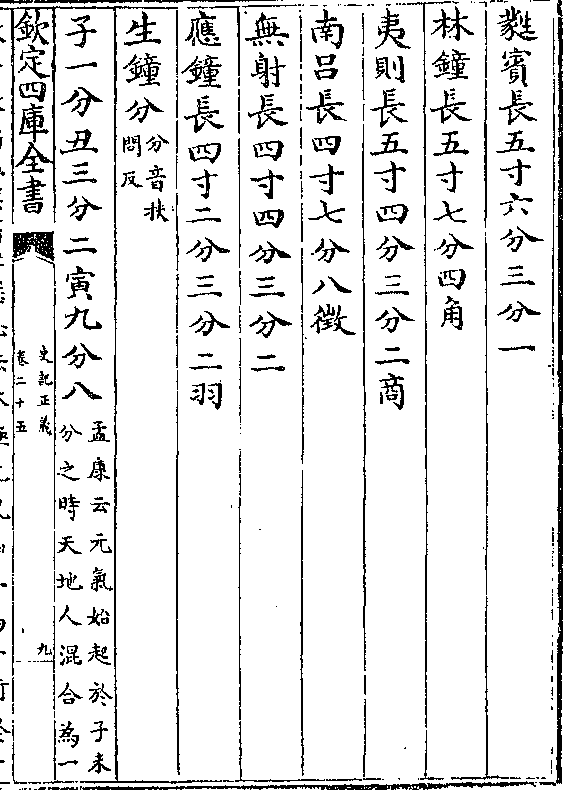 蕤賓長五寸六分三分一
林鐘長五寸七分四角
夷則長五寸四分三分二商
南呂長四寸七分八徴
無射長四寸四分三分二
應鐘長四寸二分三分二羽
生鐘分
分音扶
問反
子一分丑三分二寅九分八
孟康云元氣始起於子未
分之時天地人混合為一
欽定四庫全書
史記正義
卷二十五
九